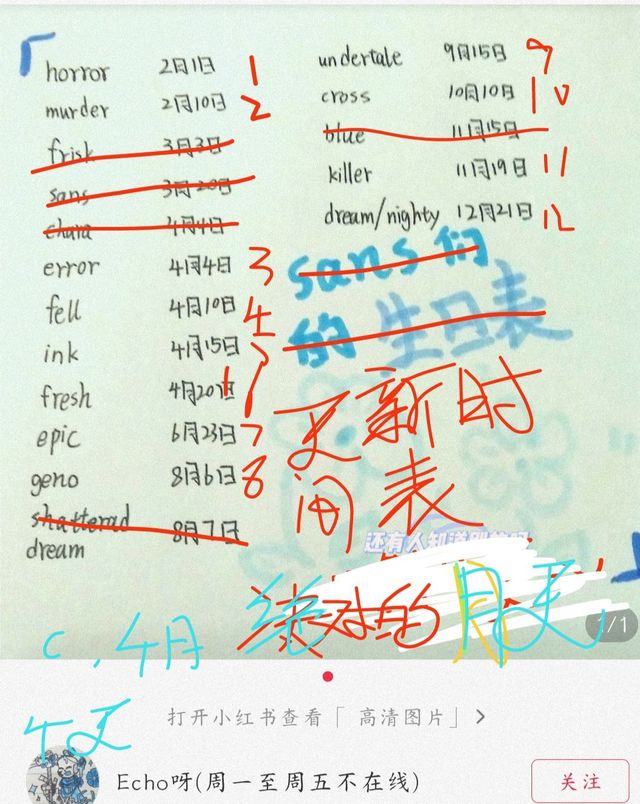 horror 2月1日 1
murder 2月10日 2
frisk 3月3日
sans 3月20日
chara 4月4日
error 4月4日 3
fell 4月10日 4
ink 4月15日 5
fresh 4月20日 6
epic 6月23日 7
geno 8月6日 8
shatterad 8月7日
dream
undertale 9月15日 9
cross 10月10日 10
blue 11月15日
killer 11月19日 11
dream/nighty 12月21日 12
sans们
的 生日表
更新时
间表
还有人知道
绝对的月更
1/1
c,4月
打开小红书查看「 高清图片」 >
Echo呀(周一至周五不在线)
关注